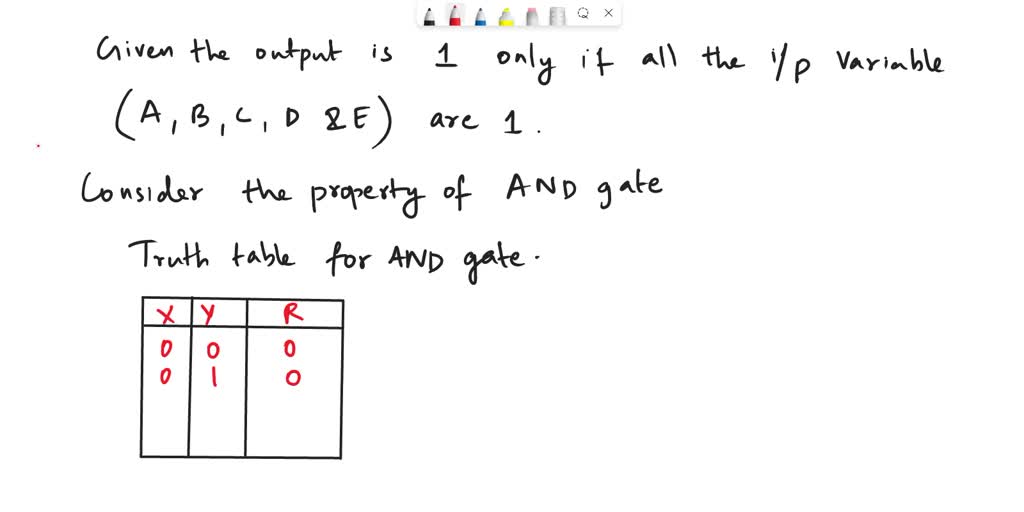 Given the output is 1 only if all the i/p variable
(A, B, C, D & E) are 1.
Consider the property of AND gate
Truth table for AND gate.
X Y R
0 0 0
0 1 0